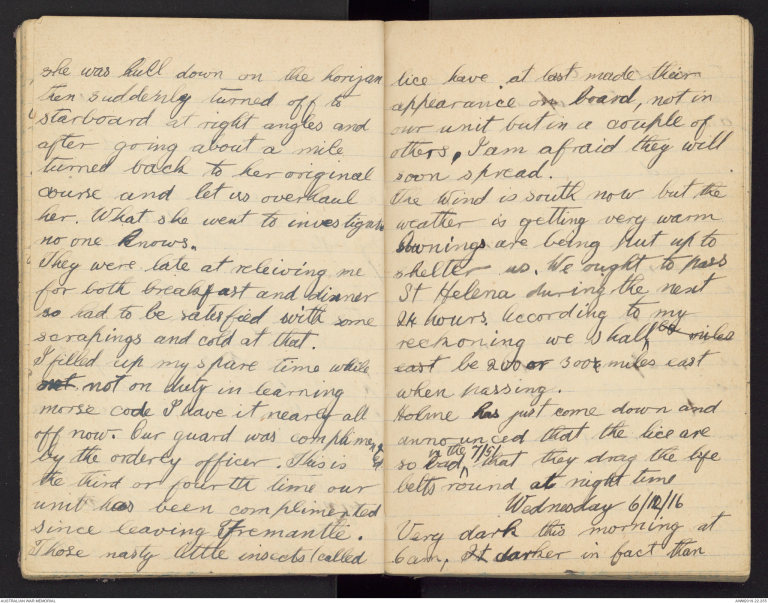 she was hull down on the horizon
then suddenly turned off to
starboard at right angles and
after going about a mile
turned back to her original
course and let us overhaul
her. What she went to investigate
no one knows.
They were late at releiving me
for both breakfast and dinner
so had to be satisfied with some
scrapings and cold at that.
I filled up my spare time while
not on duty in learning
morse code I have it nearly all
off now. Our guard was complimented
by the orderly officer. This is
the third or fourth time our
unit has been complimented
since leaving Fremantle.
Those nasty little insects (called
lice have at last made their
appearance on board, not in
our unit but in a couple of
others, I am afraid they will
soon spread.
The Wind is south now but the
weather is getting very warm
Awnings are being put up to
shelter us. We ought to pass
St Helena during the next
24 hours. According to my
reckoning we shall
be 200 or 300 miles east
when passing.
Holme has just come down and
announced that the lice are
so bad in the 7/51 that they drag the life
belts round at night time
Wednesday 6/12/16
Very dark this morning at
6 am, It darker in fact than
AUSTRALIAN WAR MEMORIAL